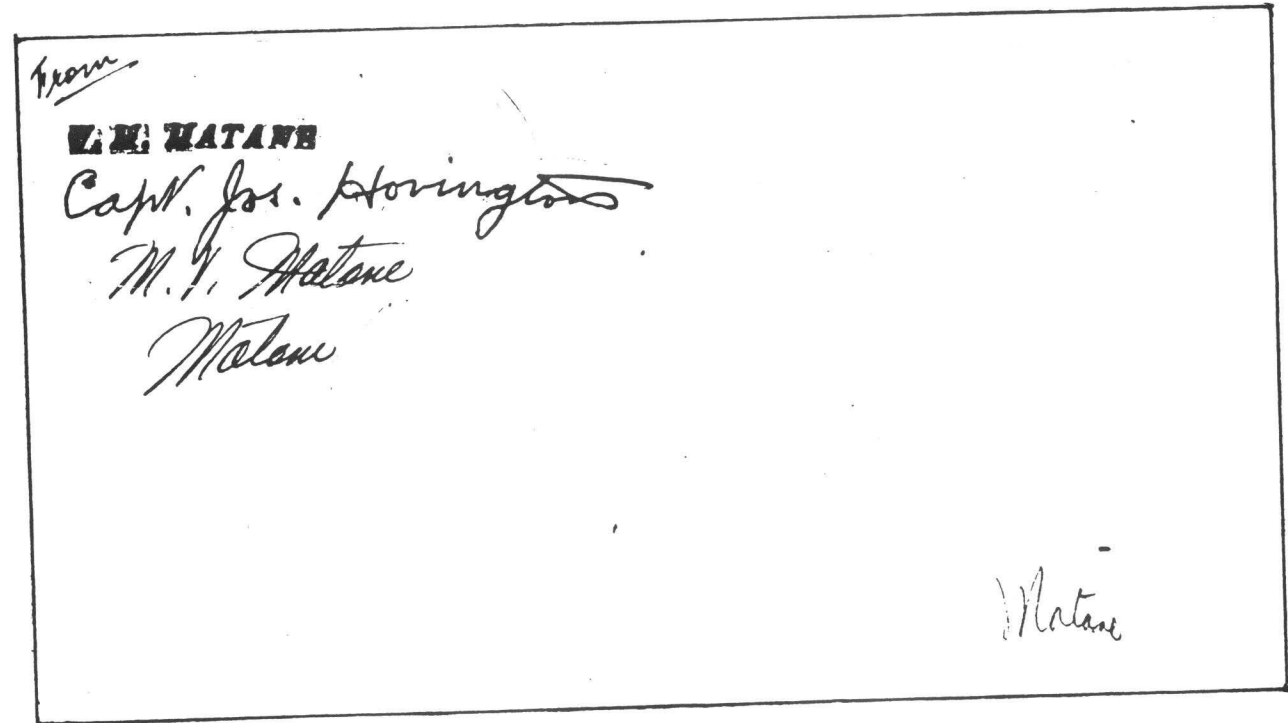 From
V. M. MATANE
Capt. Jos. Hovington
M. V. Matane
Matane
Matane